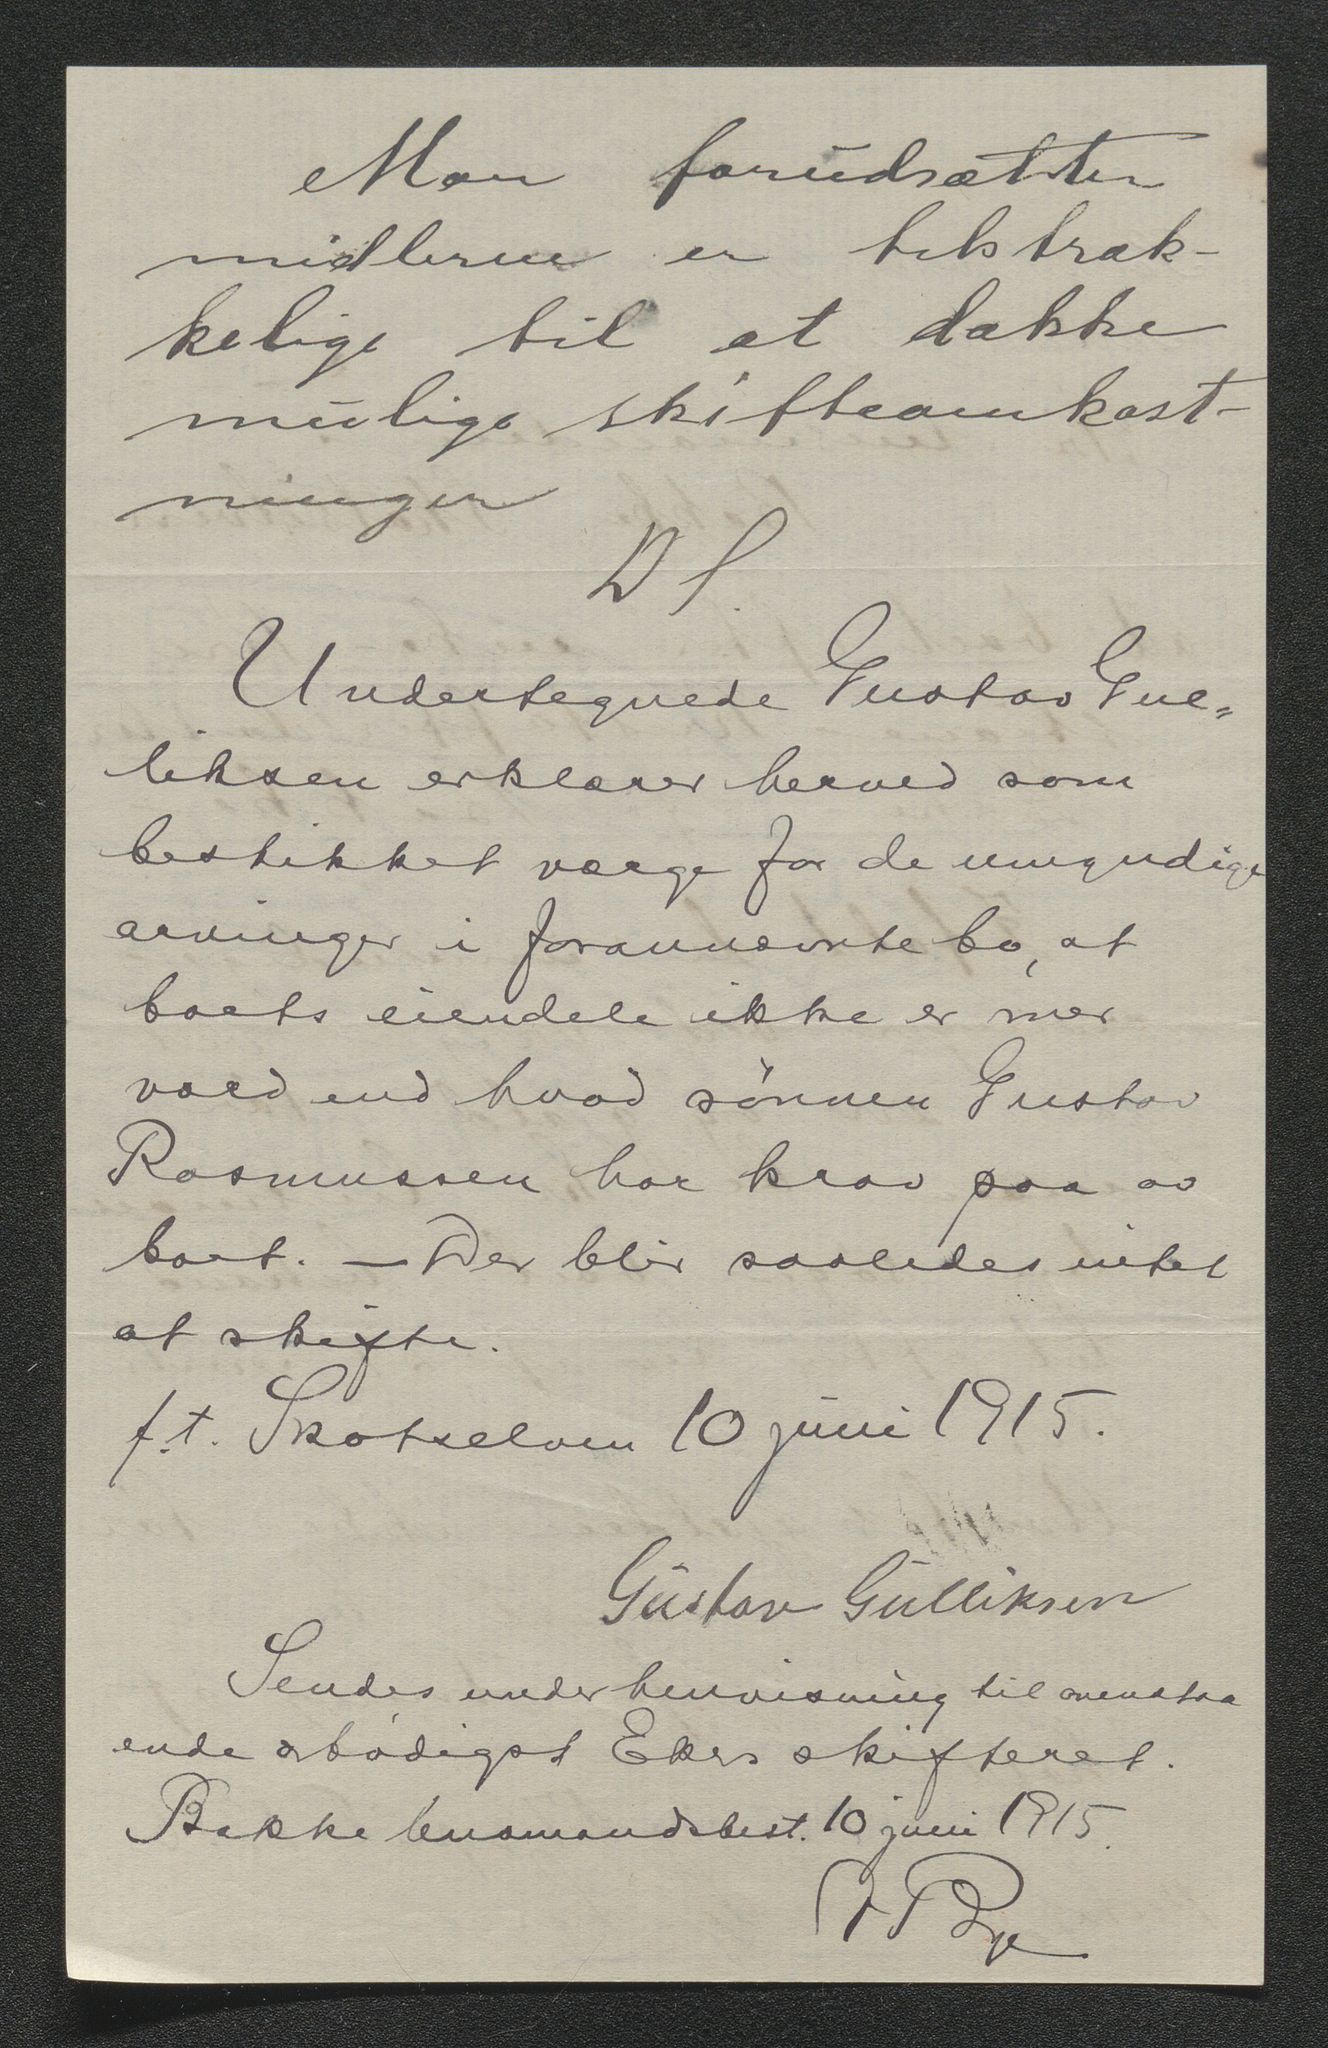 Man forudsætter
midlerne er tilstræk-
kelige til at dække
mulige skifteomkost-
ninger
D S.
Undertegnede Gustav Gul=
liksen erklærer herved som
beskikket værge for de umyndige
arvinger i forannævnte bo, at
boets eiendele ikke er mer
værd end hvad sönnen Gustav
Rasmussen har krav paa av
boet. – Der blir saaledes intet
at skifte.
f.t. Skotselven 10 juni 1915.
Gustav Gulliksen
Sendes under henvisning til ovenstaa
ende ærbödigst Ekers skifteret.
Bakke lensmandsbest. 10 juni 1915.